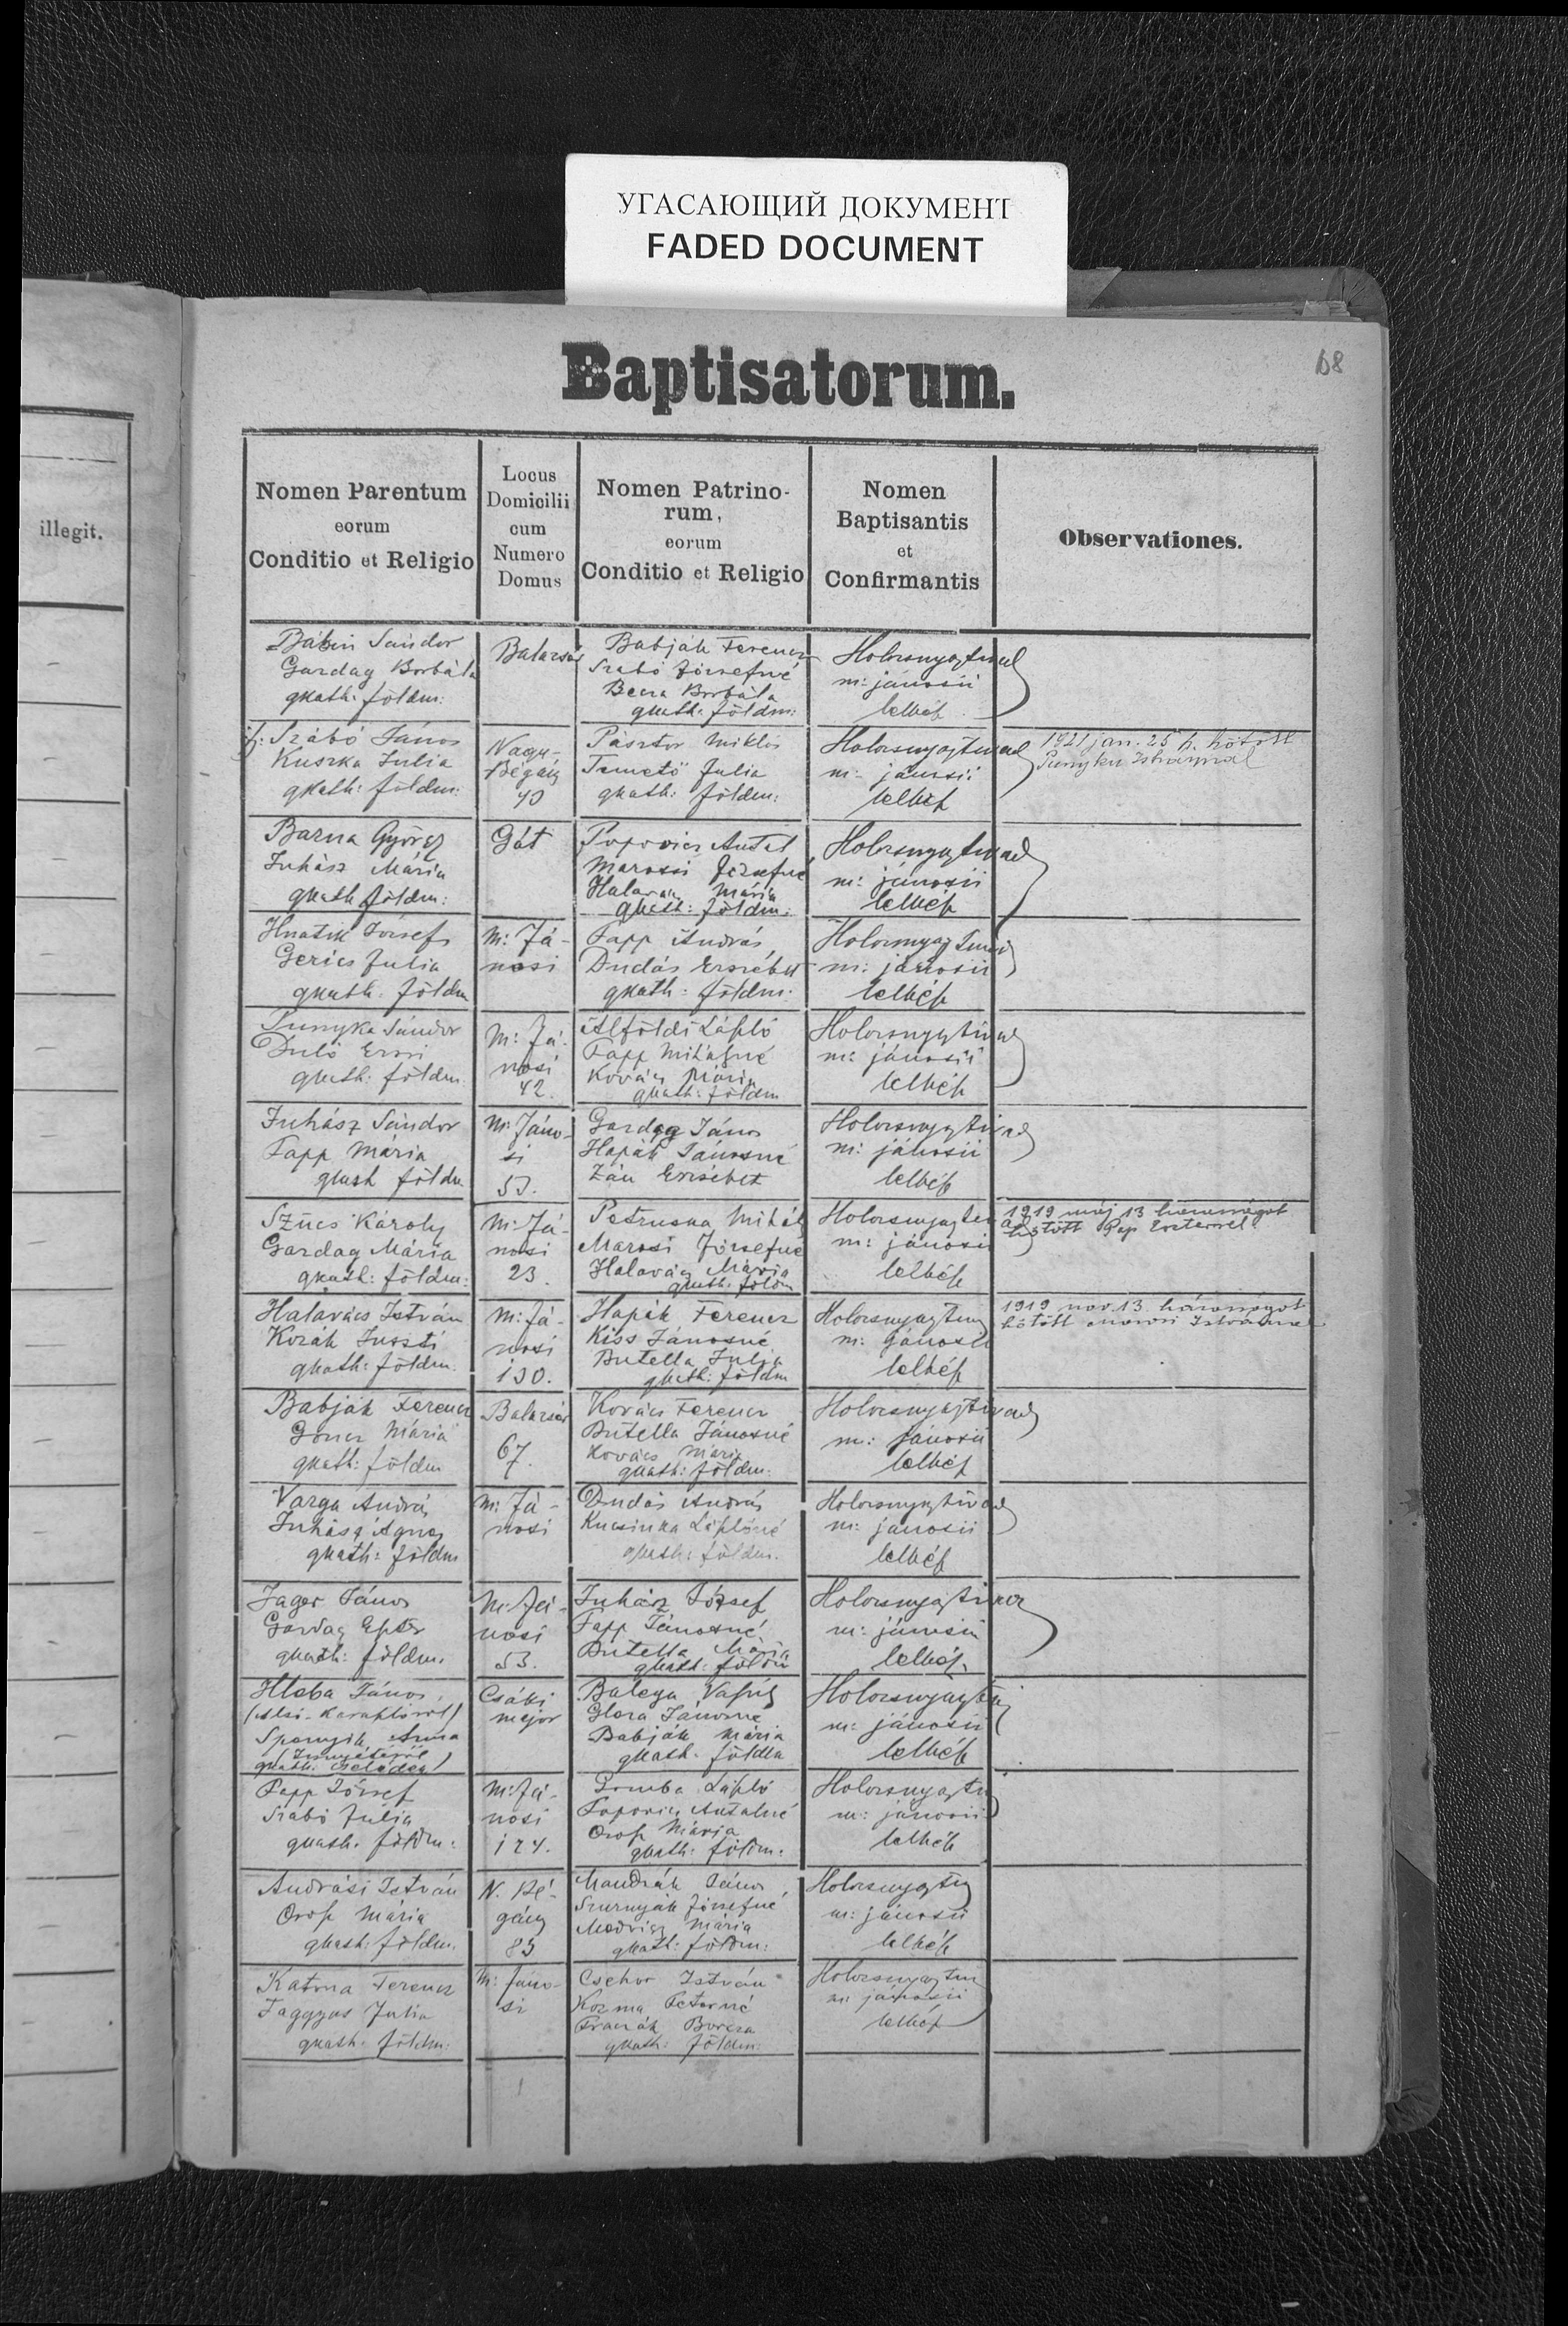 УГАСАЮЩИЙ ДОКУМЕНТ
FADED DOCUMENT
68
Baptisatorum.
illegit.
Nomen Parentum
eorum
Conditio et Religio
Locus
Domicilii
cum
Numero
Domus
Nomen Patrino-
rum,
eorum
Conditio et Religio
Nomen
Baptisantis
et
Confirmantis
Observationes.
Sándor
Gardag Borbála
gkath: földm:
Babják Ferencz
Szabó Józsefné
Borbála
gkath: földm:
m: jánosii
lelkész
Szábó János
Kuszka Julia
gkath: földm:
Nagy-
Bégány
40
Pásztor Miklós
Temető Julia
gkath: földm:
m: jánosii
lelkész
1921 jan. 25 h. kötött
Punyku Istvánnal
Barna György
Juhász Mária
gkath földm:
Gát
Popovics Antal
Marosi Józsefné
Mária
gkath: földm:
m: jánosii
lelkész
Hnatik József
Gerics Julia
gkath: földm
m: Já-
nosi
Papp András
Dudás Erzsébet
gkath: földm:
m: jánosii
lelkész
Punyka Sándor
Duló Erzsi
gkath: földm.
m: Já-
nosi
42.
Alföldi László
Papp Mihályné
Kovács Mária
gkath: földm
m: jánosii
lelkész
Juhász Sándor
Papp Mária
gkath földm
m: Jáno-
si
53.
Gardag János
Hapák Jánosné
Zán Erzsébet
m: jánosii
lelkész
Szűcs Károly
Gardag Mária
gkath: földm:
m: Já-
nosi
23.
Petruska Mihály
Marosi Józsefné
Halavács Mária
gkath: földm
m: jánosii
lelkész
1919 máj 13 házasságot
kötött Pap Eszterrel
Halavács István
Kozák Zsuzsi
gkath: földm.
m: Já-
nosi
130.
Hapák Ferencz
Kiss Jánosné
Butella Julia
gkath: földm
m: jánosi
lelkész
1919 nov. 13. házasságot
kötött Marosi Istvánnal
Babják Ferencz
Göncz Mária
gkath: földm
67.
Kovács Ferencz
Butella Jánosné
Kovács Mária
gkath: földm:
m: jánosii
lelkész
Varga András
Juhász Ágnes
gkath: földm
m: Já-
nosi
Dudás András
Kucsinka Lászlóné
gkath: földm.
m: jánosii
lelkész
Jager János
Gardag Eszter
gkath: földm.
m: Já-
nosi
53.
Juhász József
Papp Jánosné
Butella Mária
gkath: földm
m: jánosii
lelkész
Hleba János
Anna
gkath. cselédek
Csáki
major
Balega Vaszily
Glora Jánosné
Babják Mária
gkath. földm
m: jánosii
lelkész
Papp József
Szabó Júlia
gkath. földm:
m: Já-
nosi
124.
Gomba László
Popovics Antalné
Orosz Mária
gkath: földm:
m: jánosii
lelkész
Andrási István
Orosz Mária
gkath: földm.
N. Bé-
gány
83
Mandrák János
Józsefné
Medvicz Mária
gkath: földm:
m: jánosii
lelkész
Katona Ferencz
Faggyas Julia
gkath: földm:
m: Jáno-
si
Csehor István
Kozma Péterné
Borcsa
gkath: földm:
m: jánosii
lelkész